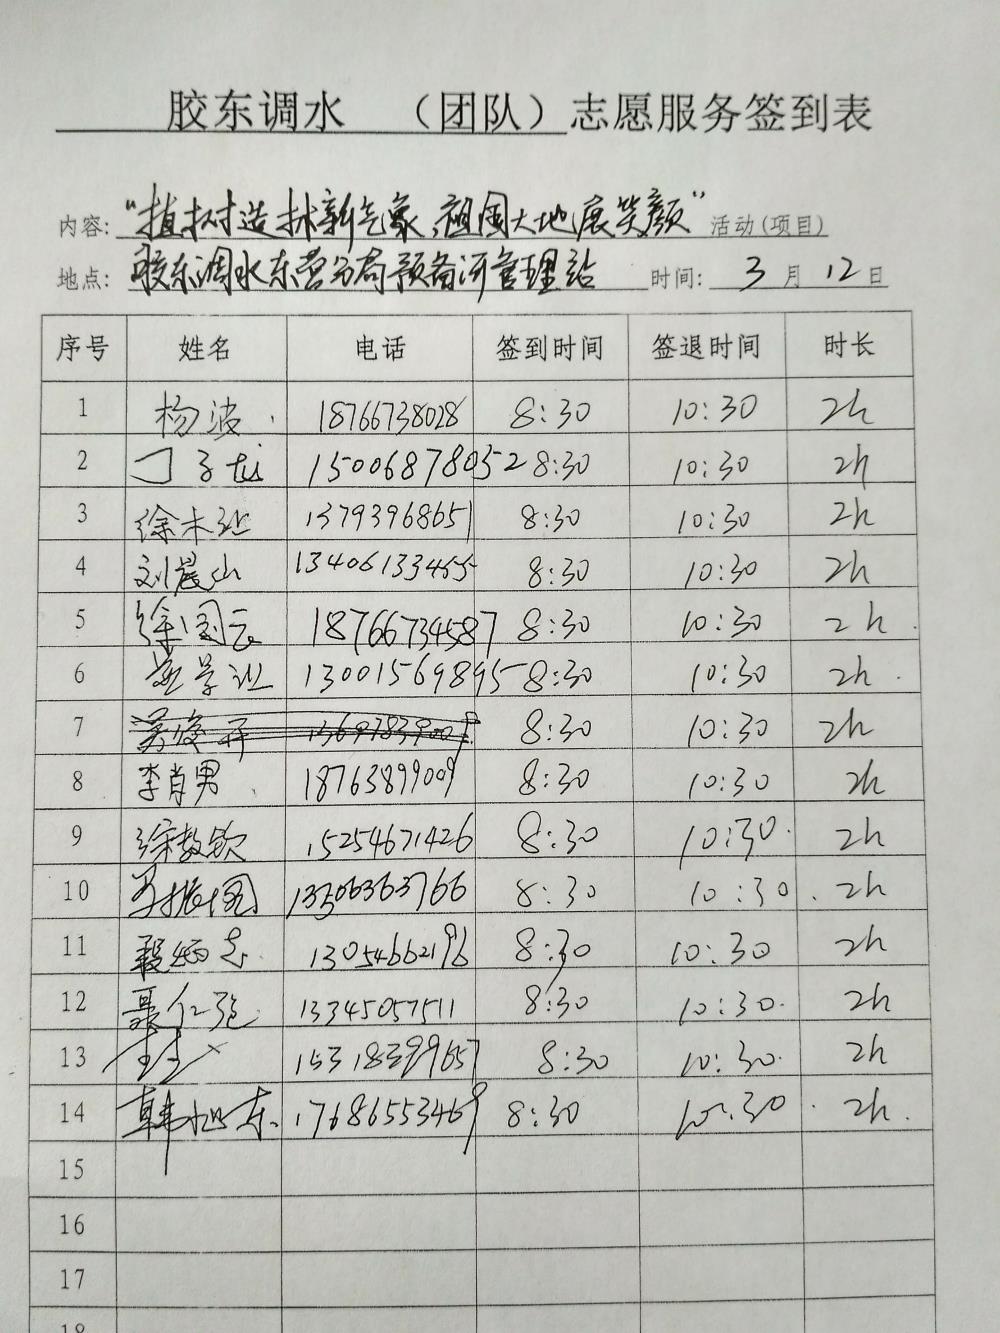 胶东调水 （团队）志愿服务签到表
内容: "植树造林新气象,祖国大地展笑颜" 活动(项目)
地点: 胶东调水东营分局预备河管理站 时间: 3 月 12 日
序号 姓名 电话 签到时间 签退时间 时长
1 杨波 18766738028 8:30 10:30 2h
2 丁子龙 15006878052 8:30 10:30 2h
3 徐木 13793968651 8:30 10:30 2h
4 刘晨山 13406133455 8:30 10:30 2h
5 徐国云 18766734587 8:30 10:30 2h
6 13001569895 8:30 10:30 2h
7 8:30 10:30 2h
8 李肖男 18763899009 8:30 10:30 2h
9 徐教钦 15254671426 8:30 10:30 2h
10 13506363766 8:30 10:30 2h
11 程炳志 13054662196 8:30 10:30 2h
12 聂仁 13345057511 8:30 10:30 2h
13 15318399657 8:30 10:30 2h
14 韩旭东 17686553469 8:30 10:30 2h
15
16
17
18